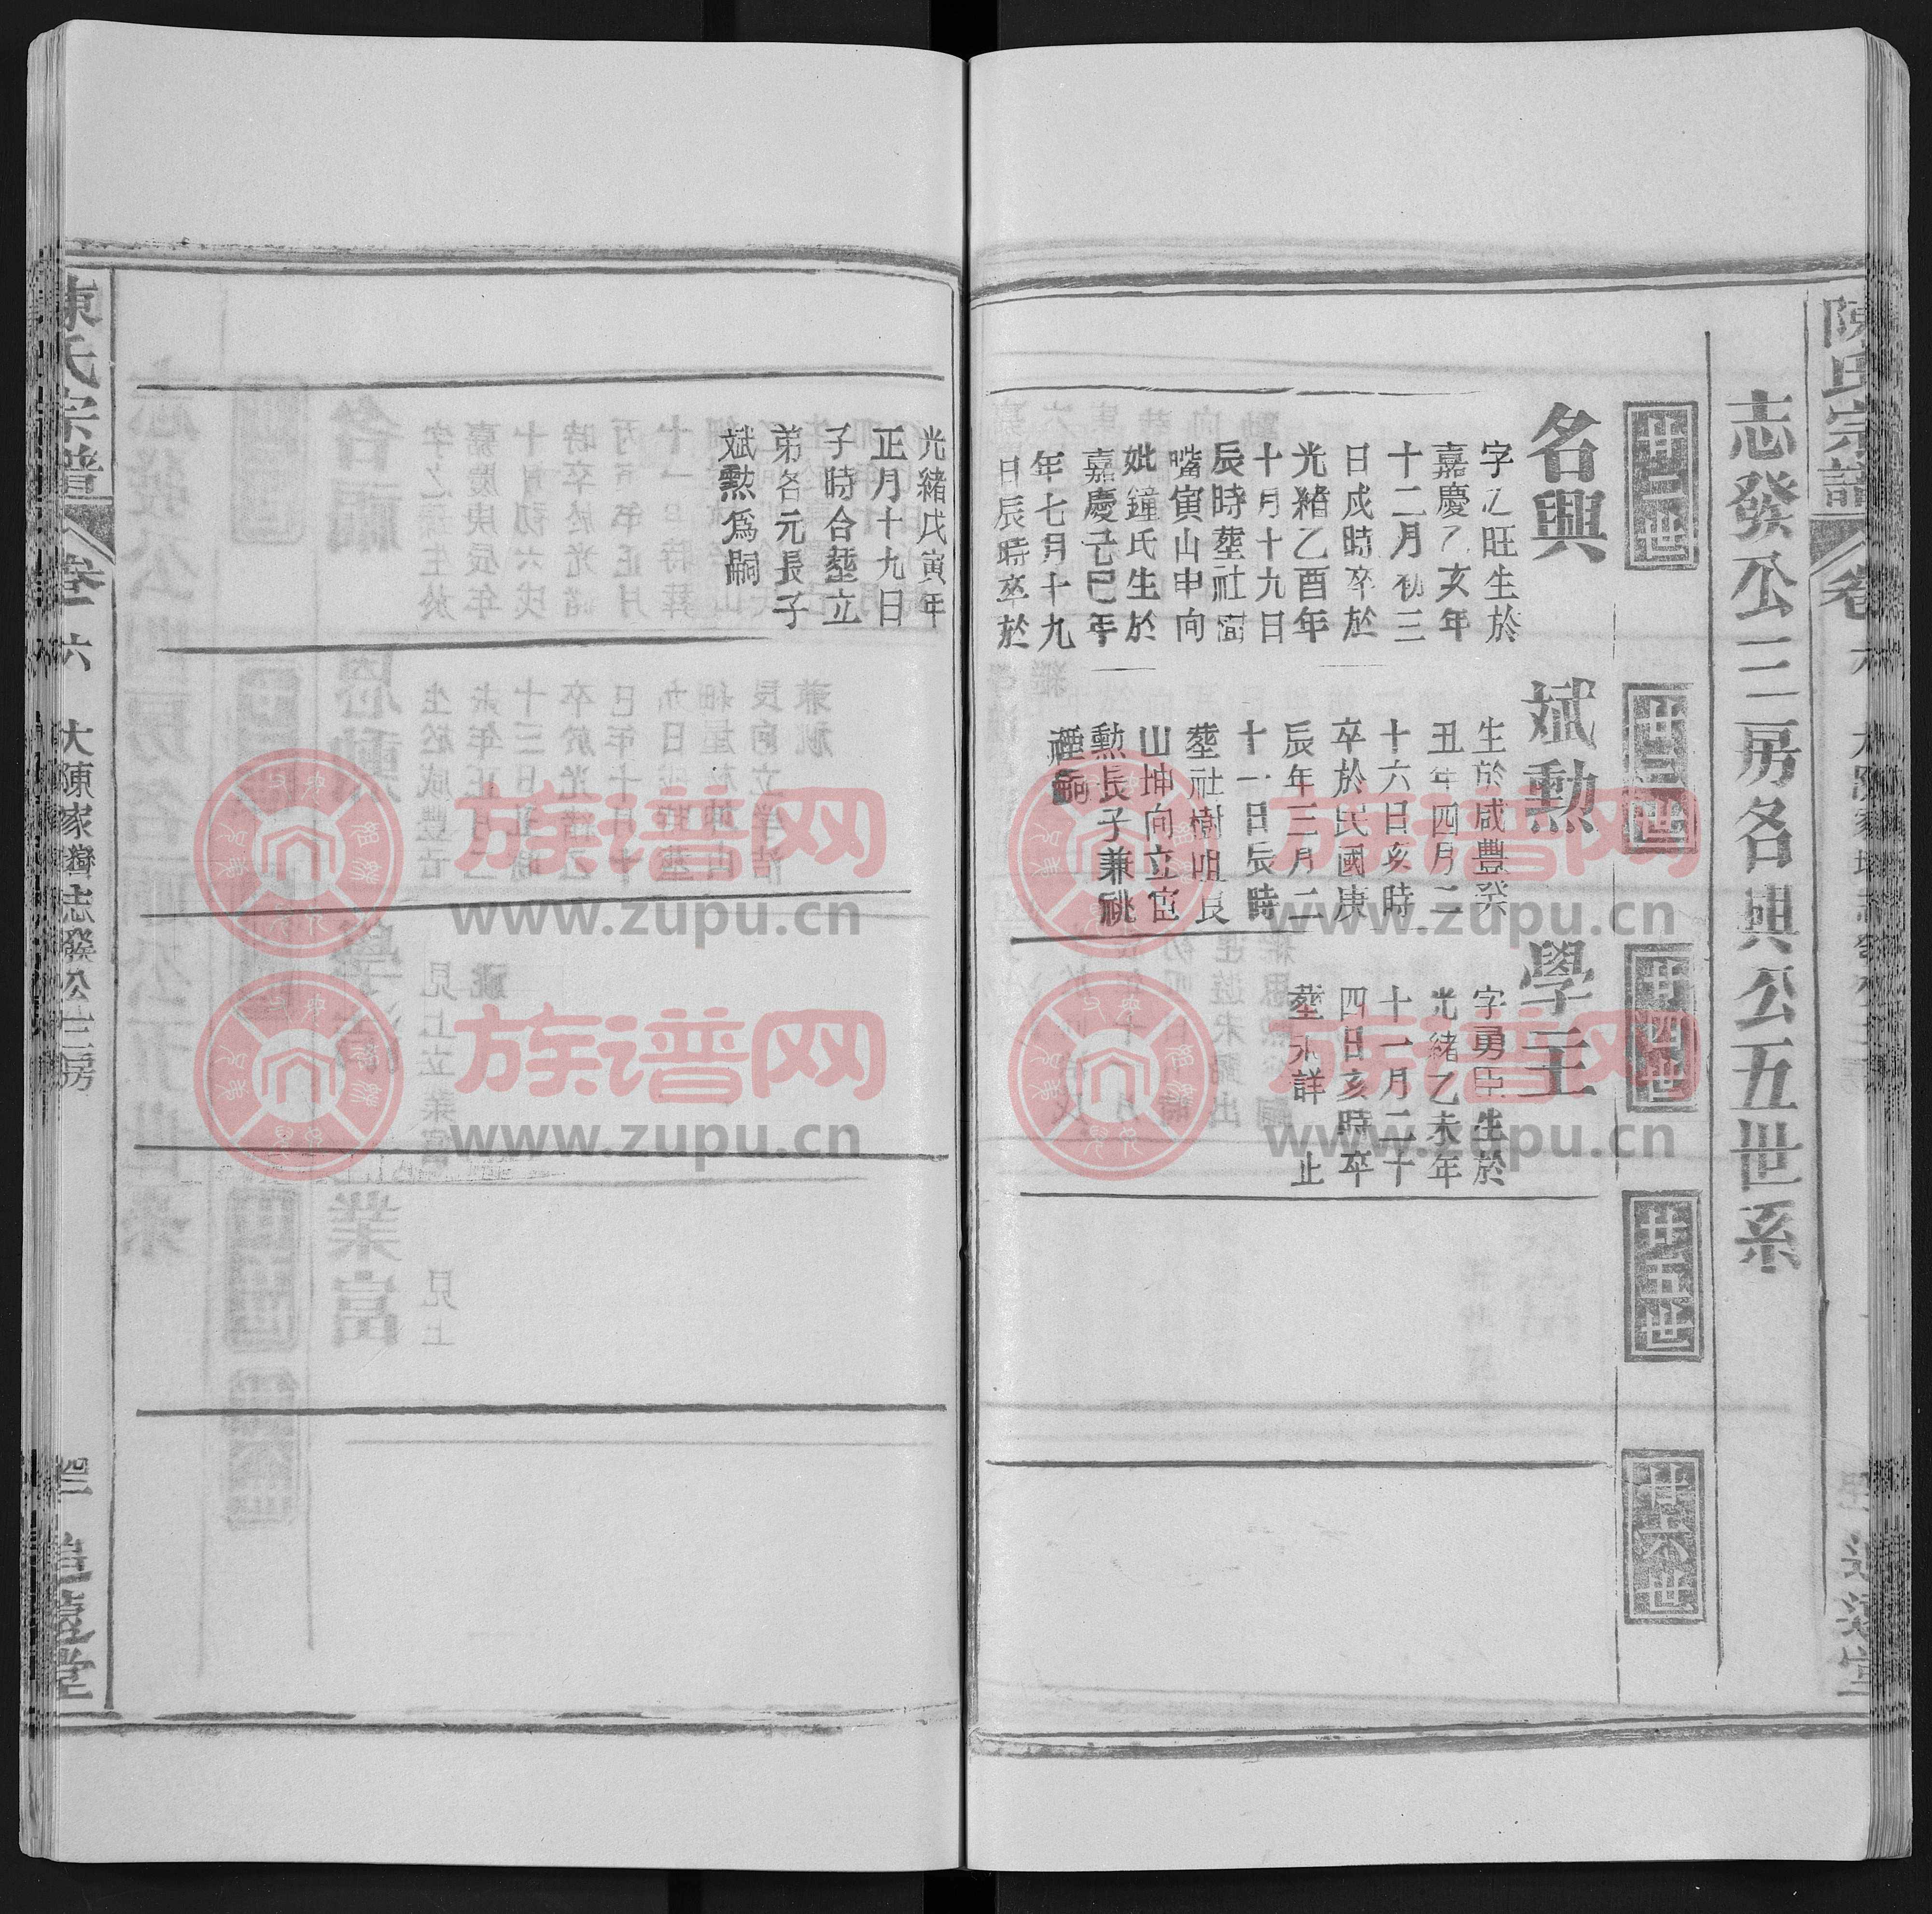 陳氏宗譜
卷六
志發公三房名興公五世系
廿二世
廿三世
廿四世
廿五世
廿六世
名興
字乙旺生於
嘉慶乙亥年
十二月初三
日戌時卒於
光緒乙酉年
十月十九日
辰時塟社
嘴寅山申向
妣鐘氏生於
嘉慶己巳年
年七月十九
日辰時卒於
斌勲
生於咸豐癸
丑年四月二
十六日亥時
卒於民國庚
辰年三月二
十一日辰時
塟社樹咀艮
山坤向立宦
勲長子兼祧
學王
字勇臣生於
光緒乙未年
十一月二十
四日亥時卒
塟未詳 止
光緒戊寅年
正月十九日
子時合塟立
弟名元長子
斌勲爲嗣
陳氏宗譜
卷六
大陳家灣志發公三房
族谱网
www.zupu.cn
族谱网
www.zupu.cn
族谱网
www.zupu.cn
族谱网
www.zupu.cn